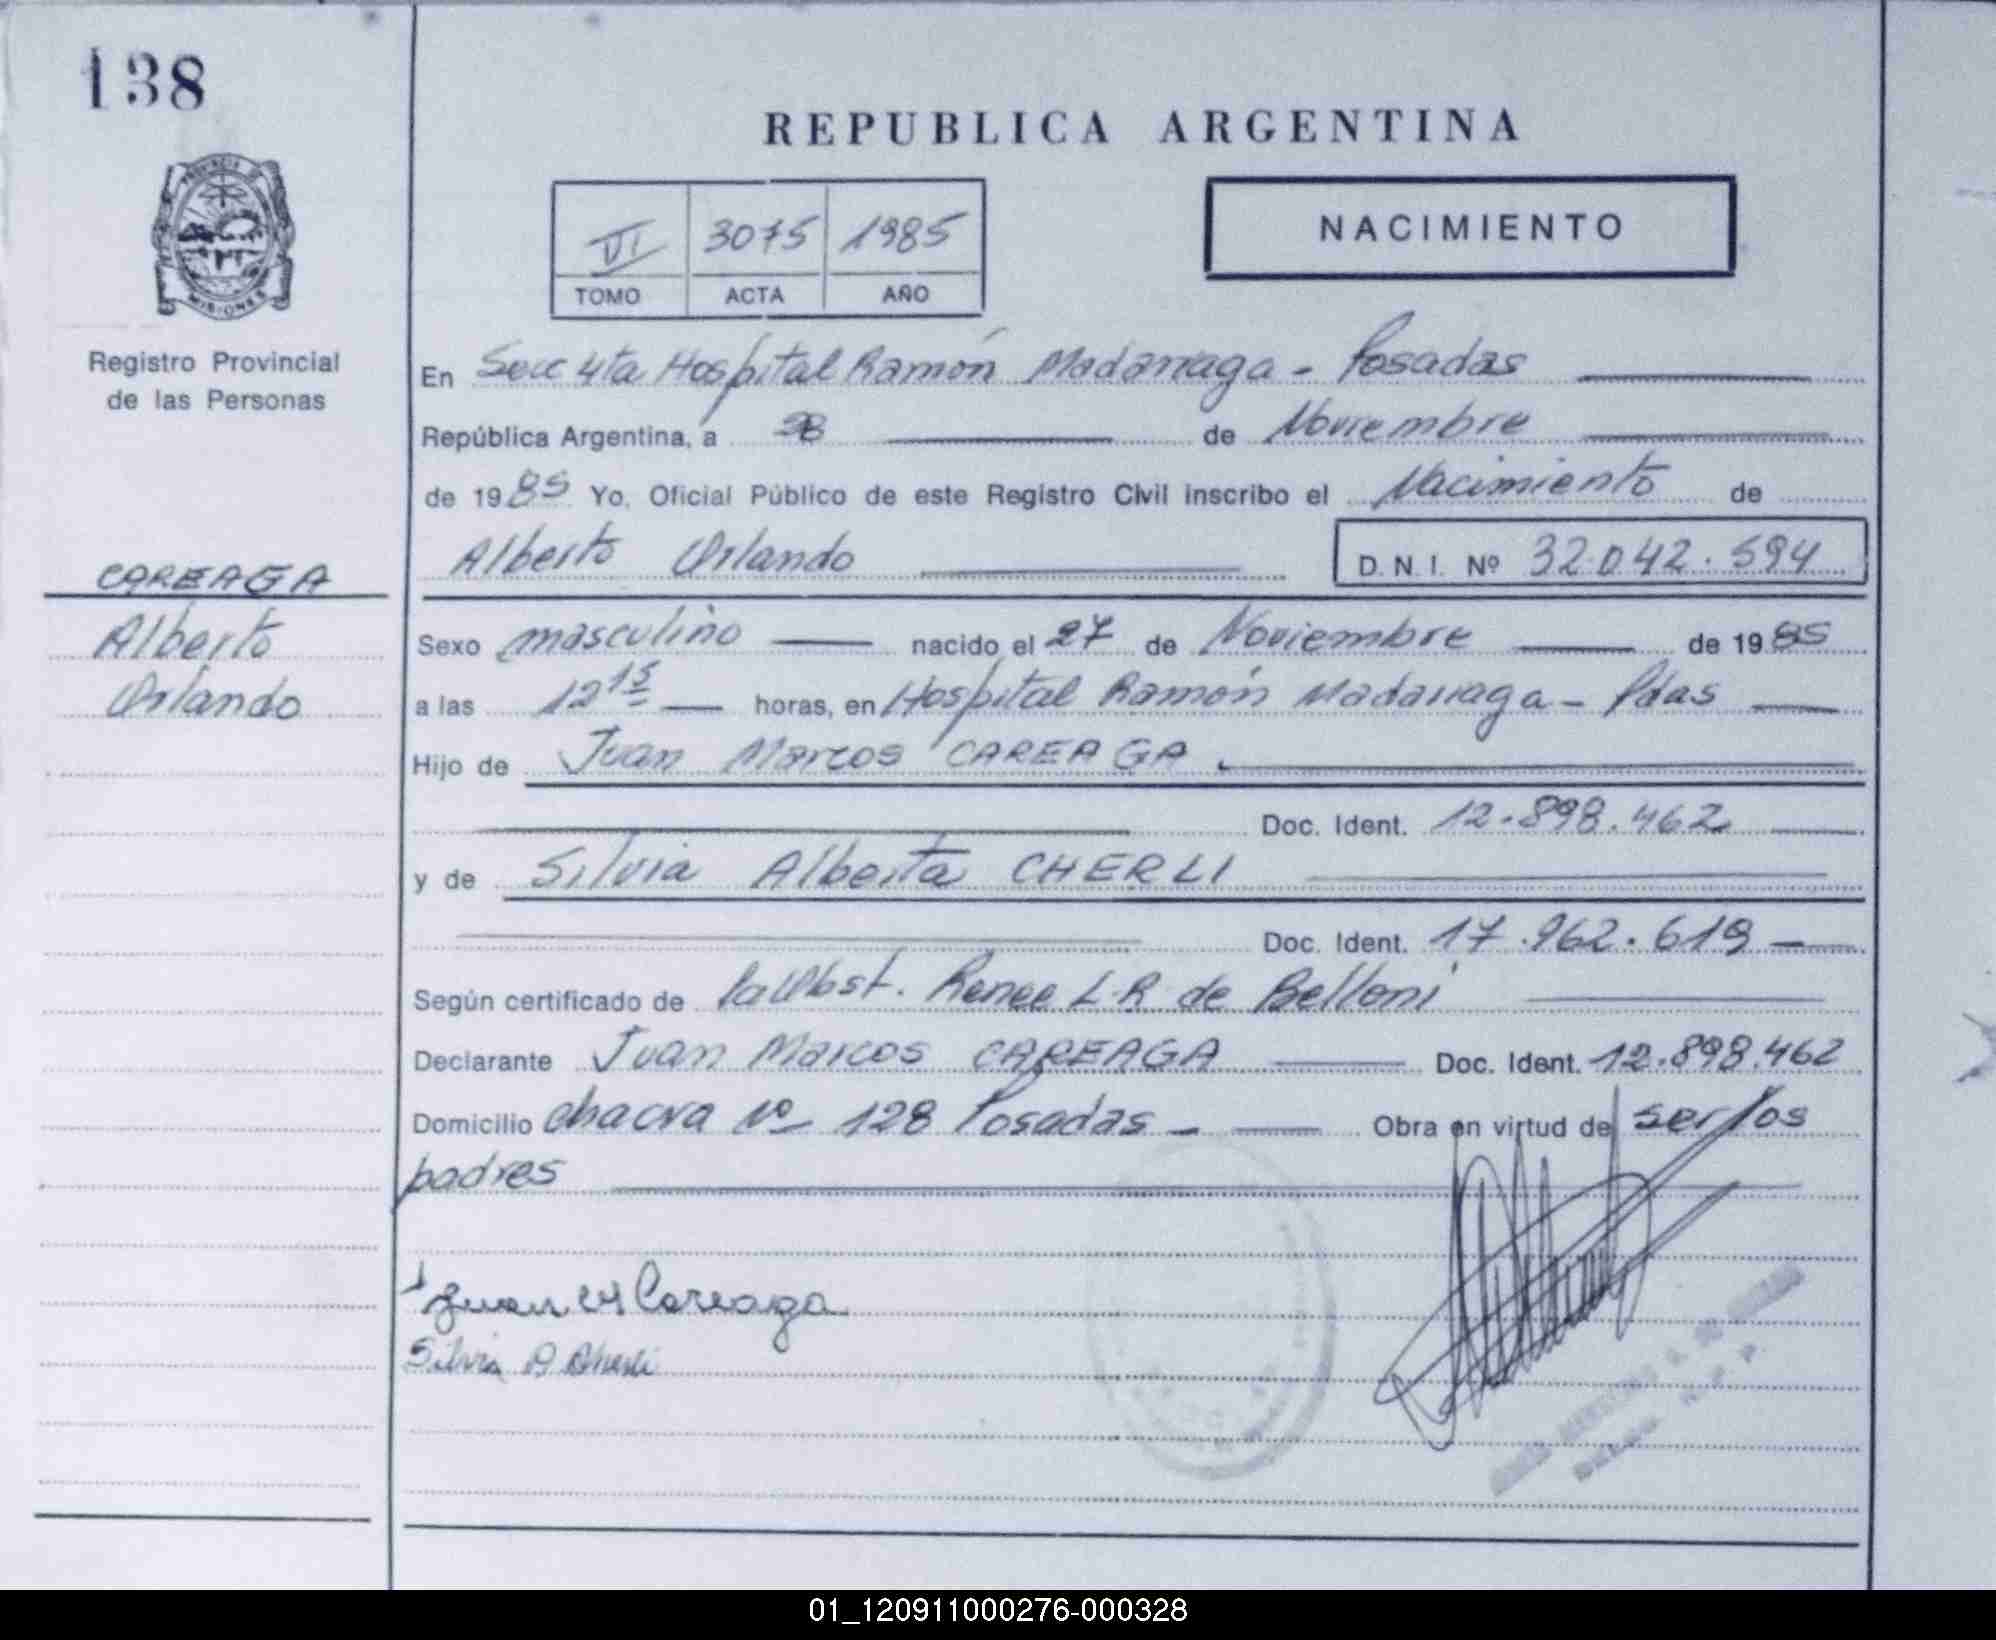 138
REPUBLICA ARGENTINA
VI 3075 1985
TOMO ACTA AÑO
NACIMIENTO
PROVINCIA DE MISIONES
Registro Provincial
de las Personas
CAREAGA
Alberto
Orlando
En Secc 4ta Hospital Ramón Madariaga - Posadas
República Argentina, a 28 de Noviembre
de 1985 Yo, Oficial Público de este Registro Civil inscribo el Nacimiento de
Alberto Orlando D.N.I. Nº 32.042.594
Sexo masculino nacido el 27 de Noviembre de 1985
a las 12 15 horas, en Hospital Ramón Madariaga - Pdas
Hijo de Juan Marcos CAREAGA
Doc. Ident. 12.898.462
y de Silvia Alberta CHERLI
Doc. Ident. 17.962.619
Según certificado de la Obst. Renee L.R de Belloni
Declarante Juan Marcos CAREAGA Doc. Ident. 12.898.462
Domicilio chacra Nº 128 Posadas - Obra en virtud de ser los
padres
Juan M Careaga
Silvia A Cherli
01_120911000276-000328